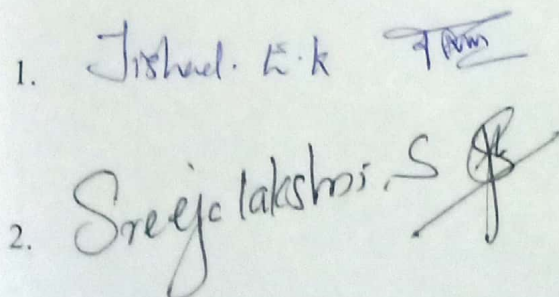 1. Jishad. E.k
2. Sreejalakshmi. S